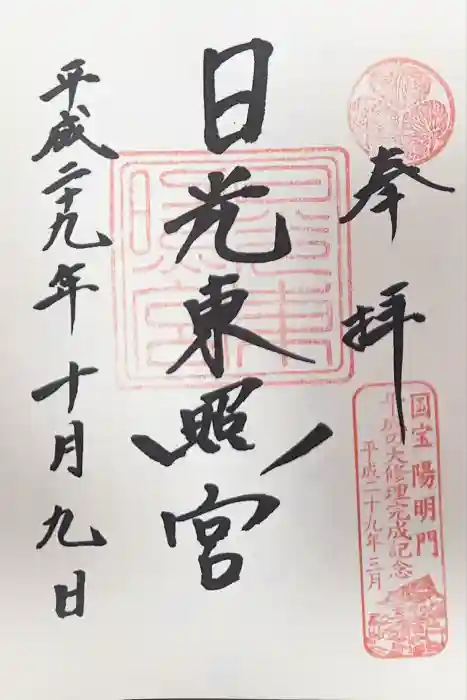 奉拝
国宝陽明門
平成の大修理完成記念
平成二十九年三月
日光東照宮
東照宮
平成二十九年十月九日